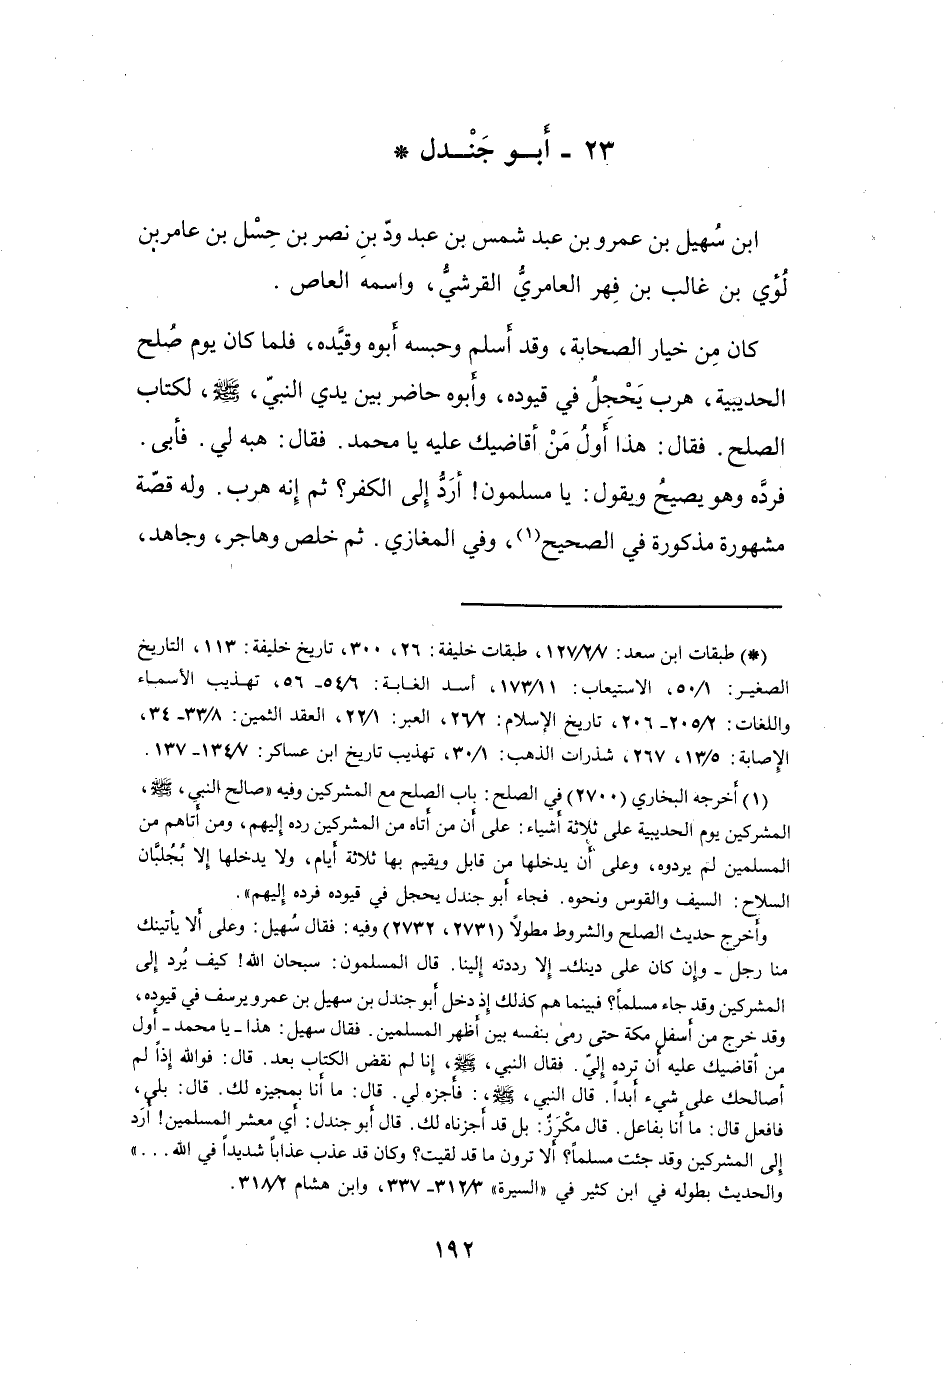 ٢٣ - أَبـو جَنْـدل *
ابن سُهيل بن عمرو بن عبد شمس بن عبد ودّ بن نصر بن حِسْل بن عامر بن
لُؤي بن غالب بن فِهر العامريُّ القرشيُّ، واسمه العاص .
كان مِن خيار الصحابة، وقد أَسلم وحبسه أَبوه وقيَّده، فلما كان يوم صُلح
الحديبية، هرب يَحْجِلُ في قيوده، وأَبوه حاضر بين يدي النبيّ، ﷺ، لكتاب
الصلح. فقال: هذا أَولُ مَنْ أقاضيك عليه يا محمد. فقال: هبه لي. فأبى.
فردَّه وهو يصيحُ ويقول: يا مسلمون! أُرَدُّ إلى الكفر؟ ثم إنه هرب. وله قصّة
مشهورة مذكورة في الصحيح(١)، وفي المغازي. ثم خلص وهاجر، وجاهد،
(*) طبقات ابن سعد: ١٢٧/٢/٧، طبقات خليفة: ٢٦، ٣٠٠، تاريخ خليفة: ١١٣، التاريخ
الصغير: ٥٠/١، الاستيعاب: ١٧٣/١١، أسد الغابة: ٥٤/٦ـ ٥٦، تهذيب الأسماء
واللغات: ٢٠٥/٢ـ ٢٠٦، تاريخ الإسلام: ٢٦/٢، العبر: ٢٢/١، العقد الثمين: ٣٣/٨ـ ٣٤،
الإصابة: ١٣/٥، ٢٦٧، شذرات الذهب: ٣٠/١، تهذيب تاريخ ابن عساكر: ١٣٤/٧ـ ١٣٧.
(١) أخرجه البخاري (٢٧٠٠) في الصلح: باب الصلح مع المشركين وفيه «صالح النبي، ﷺ،
المشركين يوم الحديبية على ثلاثة أشياء: على أن من أتاه من المشركين رده إليهم، ومن أتاهم من
المسلمين لم يردوه، وعلى أن يدخلها من قابل ويقيم بها ثلاثة أيام، ولا يدخلها إلا بُجُلبَّان
السلاح: السيف والقوس ونحوه. فجاء أبو جندل يحجل في قيوده فرده إليهم».
وأخرج حديث الصلح والشروط مطولاً (٢٧٣١، ٢٧٣٢) وفيه: فقال سُهيل: وعلى ألا يأتينك
منا رجل - وإن كان على دينك - إلا رددته إلينا. قال المسلمون: سبحان الله! كيف يُرد إلى
المشركين وقد جاء مسلماً؟ فبينما هم كذلك إذ دخل أبو جندل بن سهيل بن عمرو يرسف في قيوده،
وقد خرج من أسفل مكة حتى رمىٰ بنفسه بين أظهر المسلمين. فقال سهيل: هذا - يا محمد - أول
من أقاضيك عليه أن ترده إليّ. فقال النبي، ﷺ، إنا لم نقض الكتاب بعد. قال: فوالله إذاً لم
أصالحك على شيء أبداً. قال النبي، ﷺ،: فأجزه لي. قال: ما أنا بمجيزه لك. قال: بلى،
فافعل قال: ما أنا بفاعل. قال مكْرَزٌ: بل قد أجزناه لك. قال أبو جندل: أي معشر المسلمين! أُرَد
إلى المشركين وقد جئت مسلماً؟ ألا ترون ما قد لقيت؟ وكان قد عذب عذاباً شديداً في الله ...»
والحديث بطوله في ابن كثير في «السيرة» ٣١٢/٣ـ ٣٣٧، وابن هشام ٣١٨/٢.
١٩٢